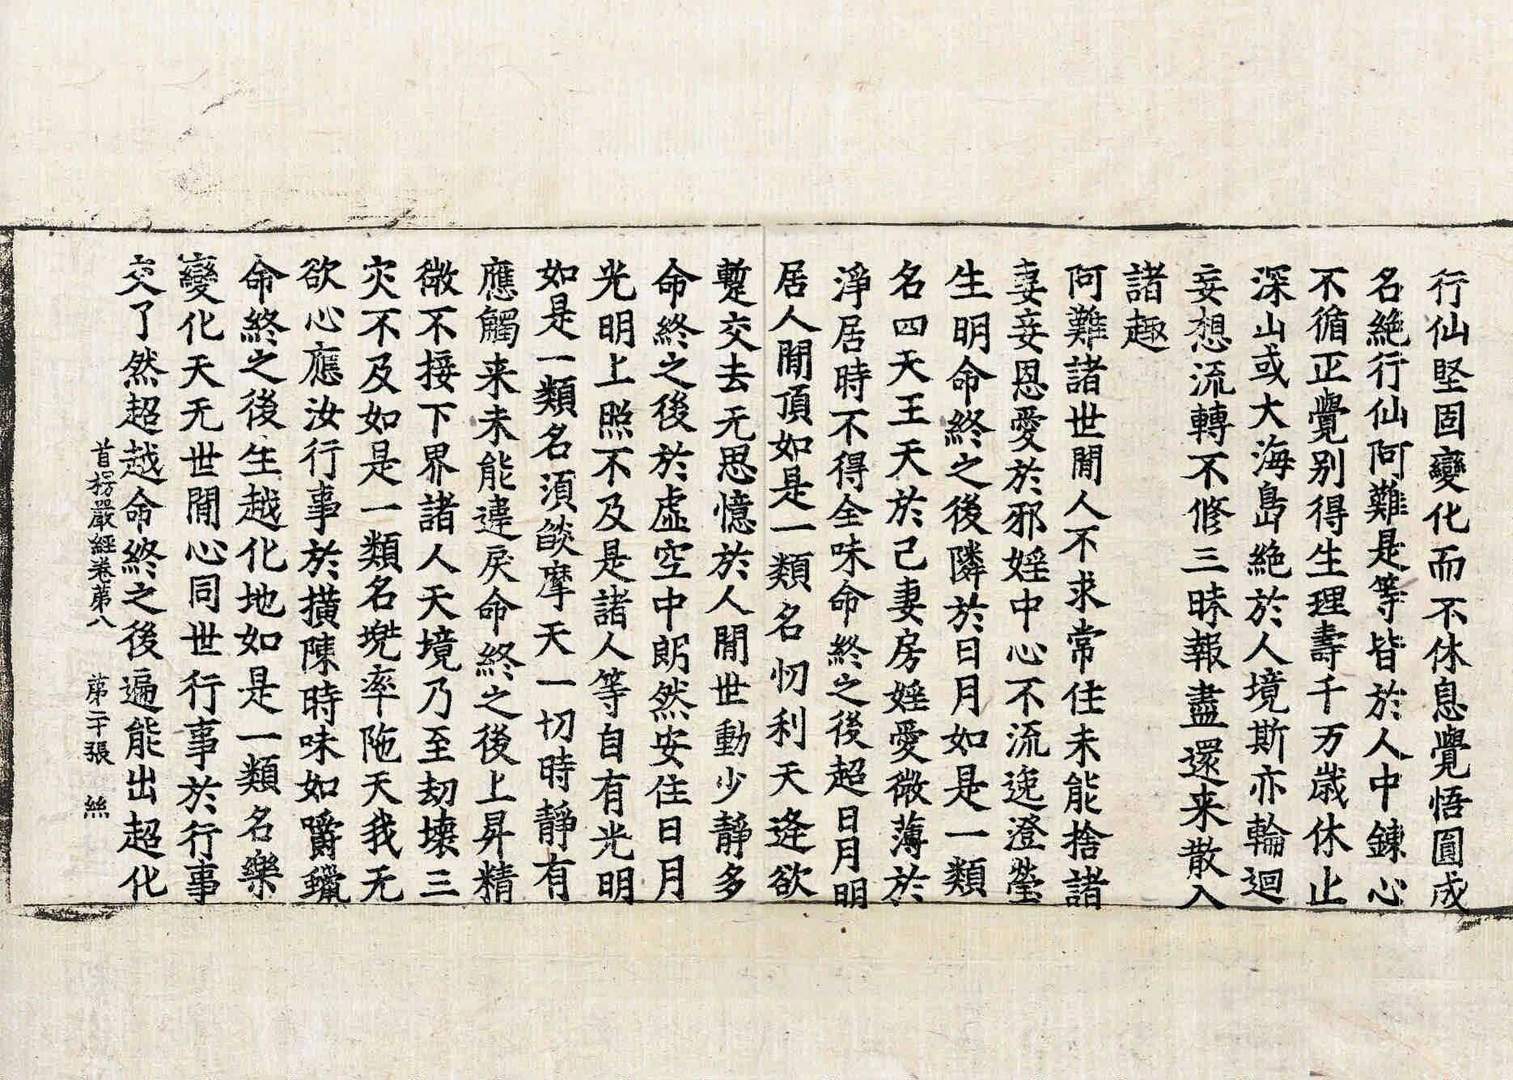 行仙堅固變化而不休息覺悟圓成
名絶行仙阿難是等皆於人中鍊心
不循正覺别得生理壽千万歳休止
深山或大海島絶於人境斯亦輪迴
妄想流轉不修三昧報盡還来散入
諸趣
阿難諸世閒人不求常住未能捨諸
妻妾恩愛於邪婬中心不流逸澄瑩
生明命終之後隣於日月如是一類
名四天王天於己妻房婬愛微薄於
淨居時不得全味命終之後超日月明
居人閒頂如是一類名忉利天逢欲
蹔交去无思憶於人閒世動少靜多
命終之後於虛空中朗然安住日月
光明上照不及是諸人等自有光明
如是一類名須燄摩天一切時靜有
應觸来未能違戾命終之後上昇精
微不接下界諸人天境乃至劫壞三
灾不及如是一類名兠率陁天我无
欲心應汝行事於撗陳時味如嚼蠟
命終之後生越化地如是一類名樂
變化天无世閒心同世行事於行事
交了然超越命終之後遍能出超化
首楞嚴經卷第八 苐二十張 絲